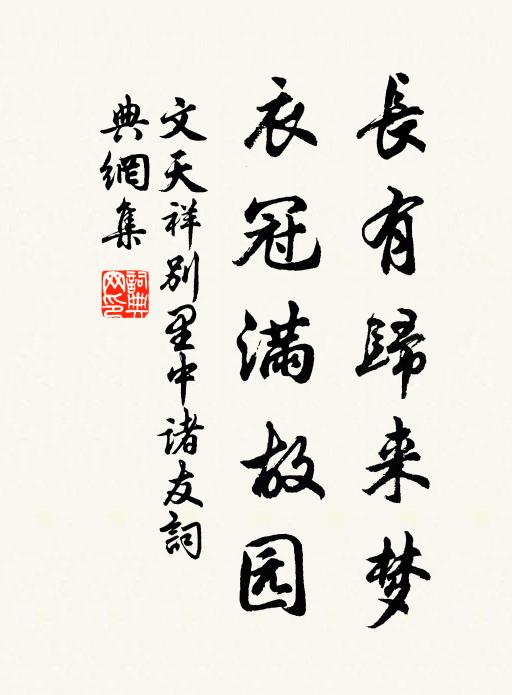 長有歸来梦
衣冠滿故园
文天祥别里中諸友詞
典網集
詞典网印